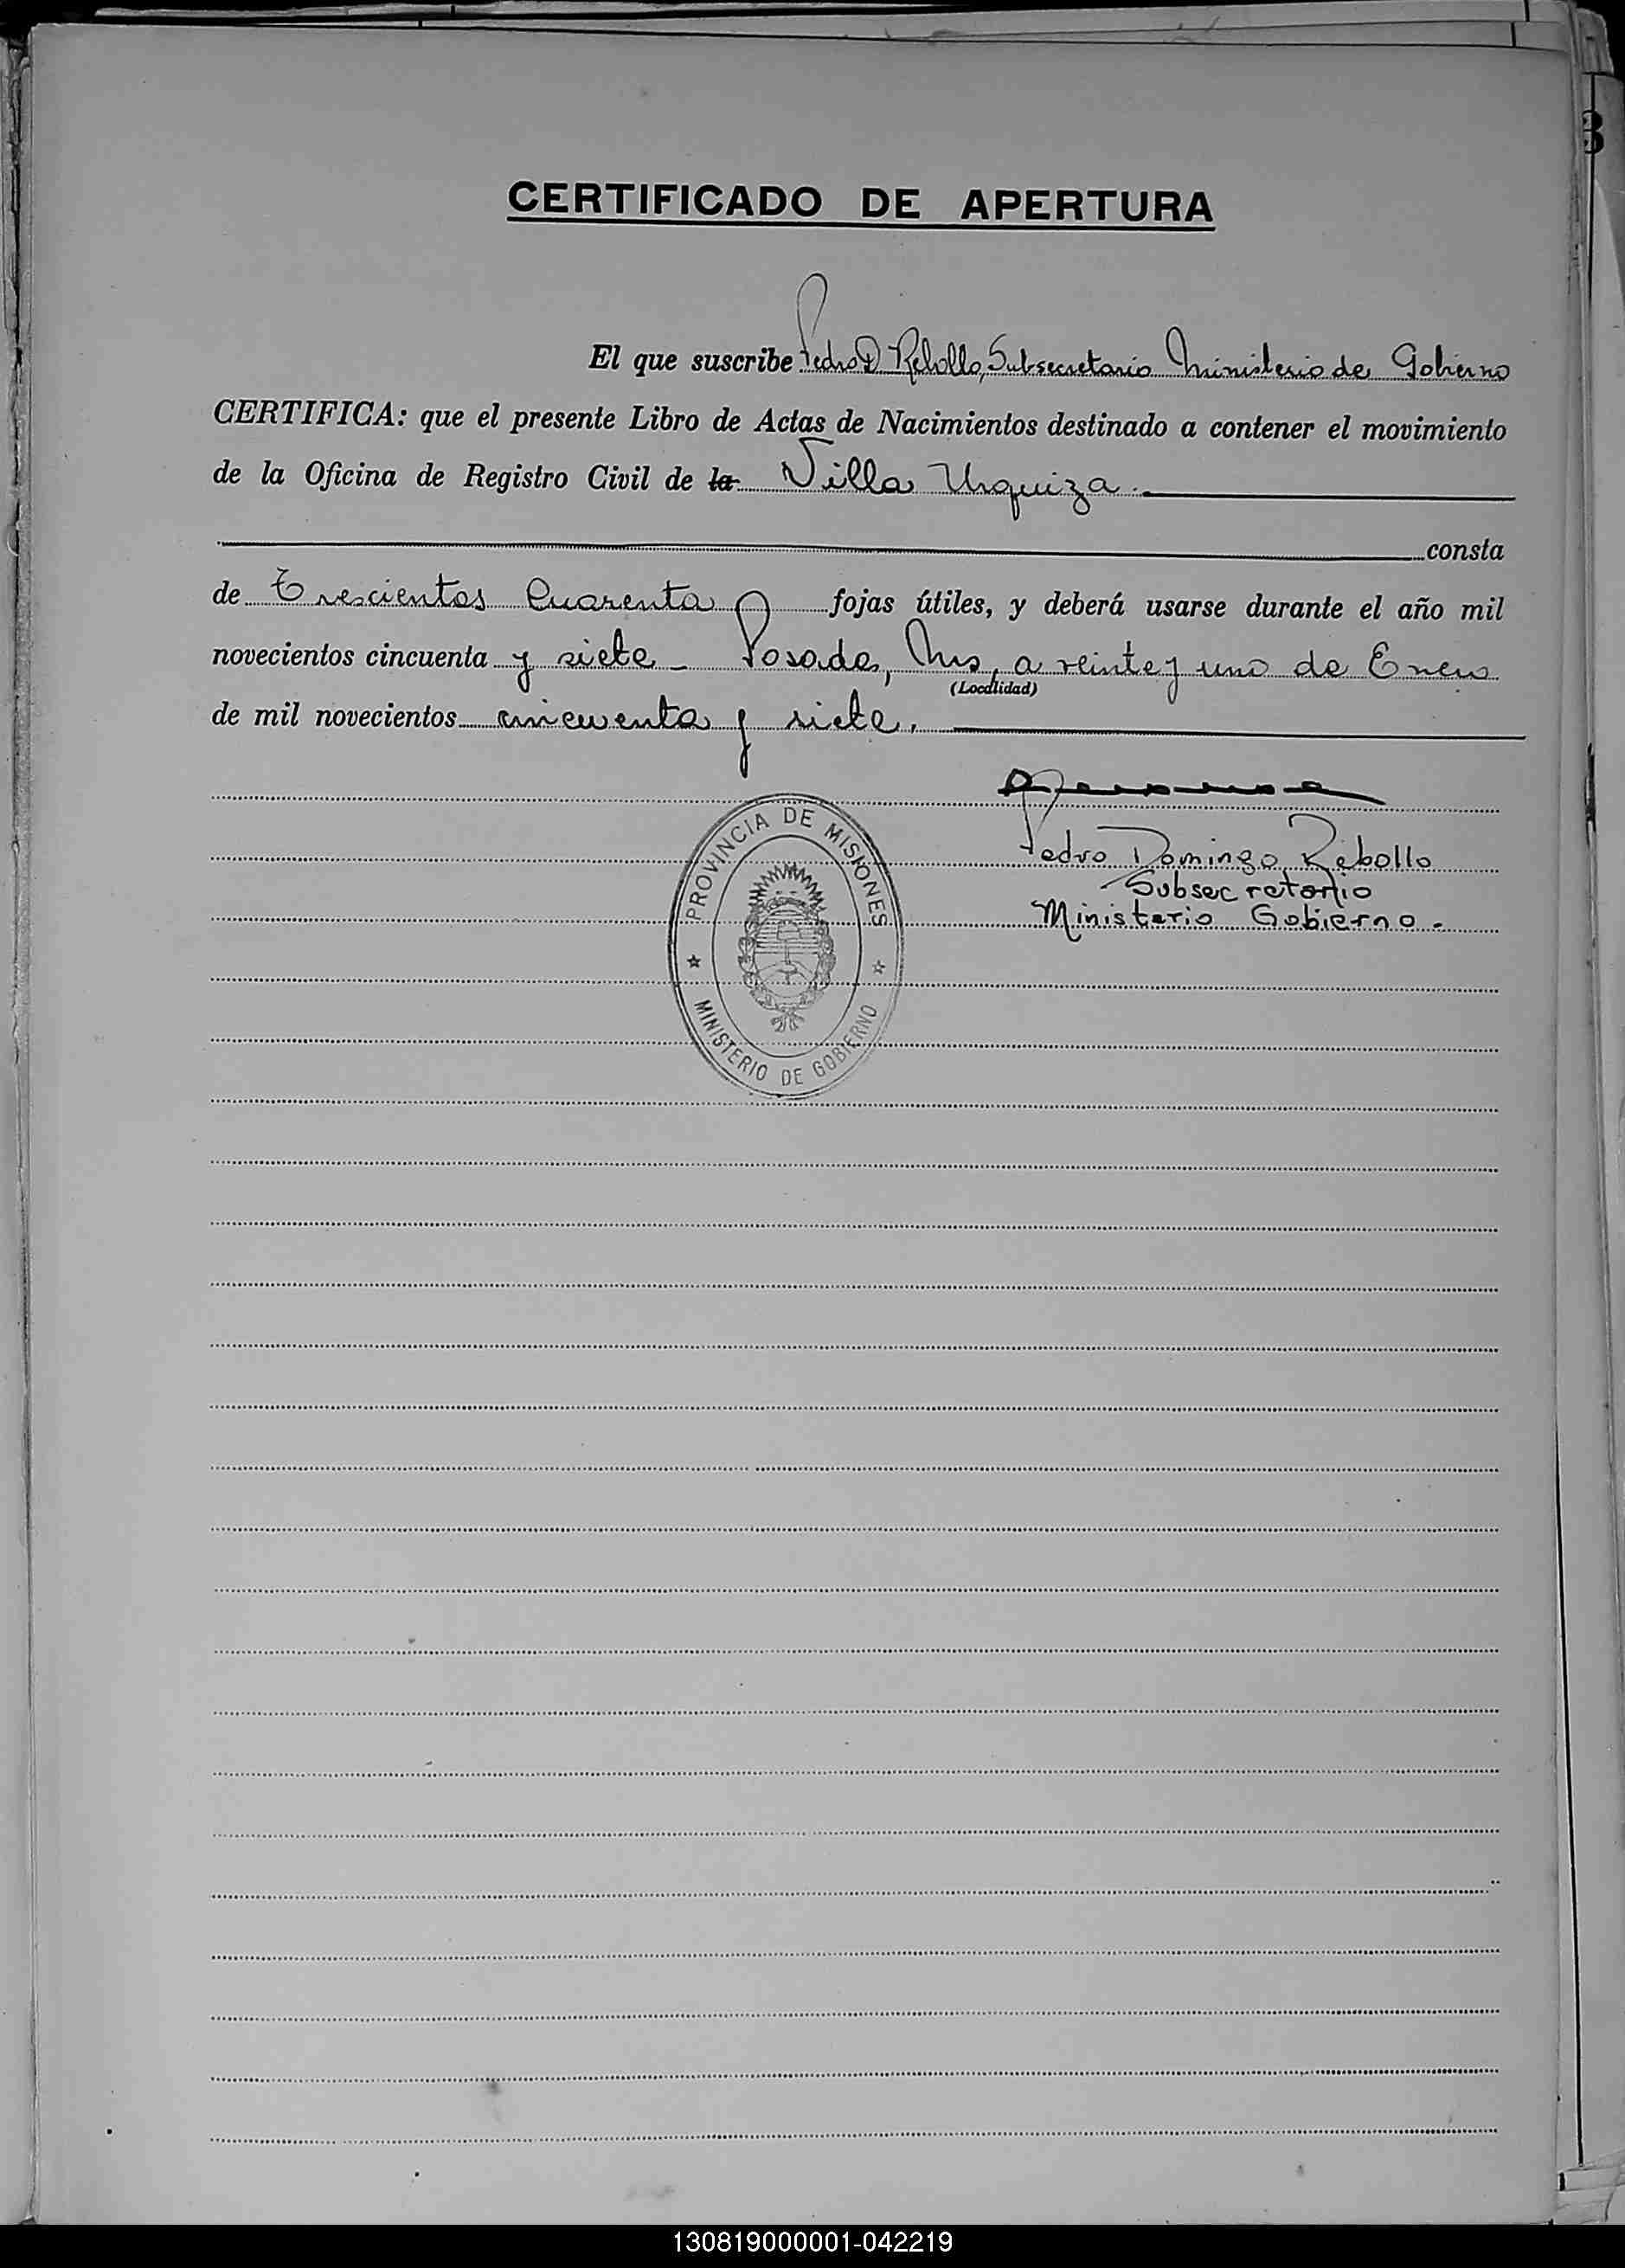 CERTIFICADO DE APERTURA
El que suscribe Pedro D Rebollo, Subsecretario Ministerio de Gobierno
CERTIFICA: que el presente Libro de Actas de Nacimientos destinado a contener el movimiento
de la Oficina de Registro Civil de la Villa Urquiza.
consta
de Trescientos Cuarenta fojas útiles, y deberá usarse durante el año mil
novecientos cincuenta y siete Posadas, Mns, a veinte y uno de Enero
(Localidad)
de mil novecientos cincuenta y siete.
Pedro Domingo Rebollo
Subsecretario
Ministerio Gobierno.
PROVINCIA DE MISIONES
MINISTERIO DE GOBIERNO
3
130819000001-042219